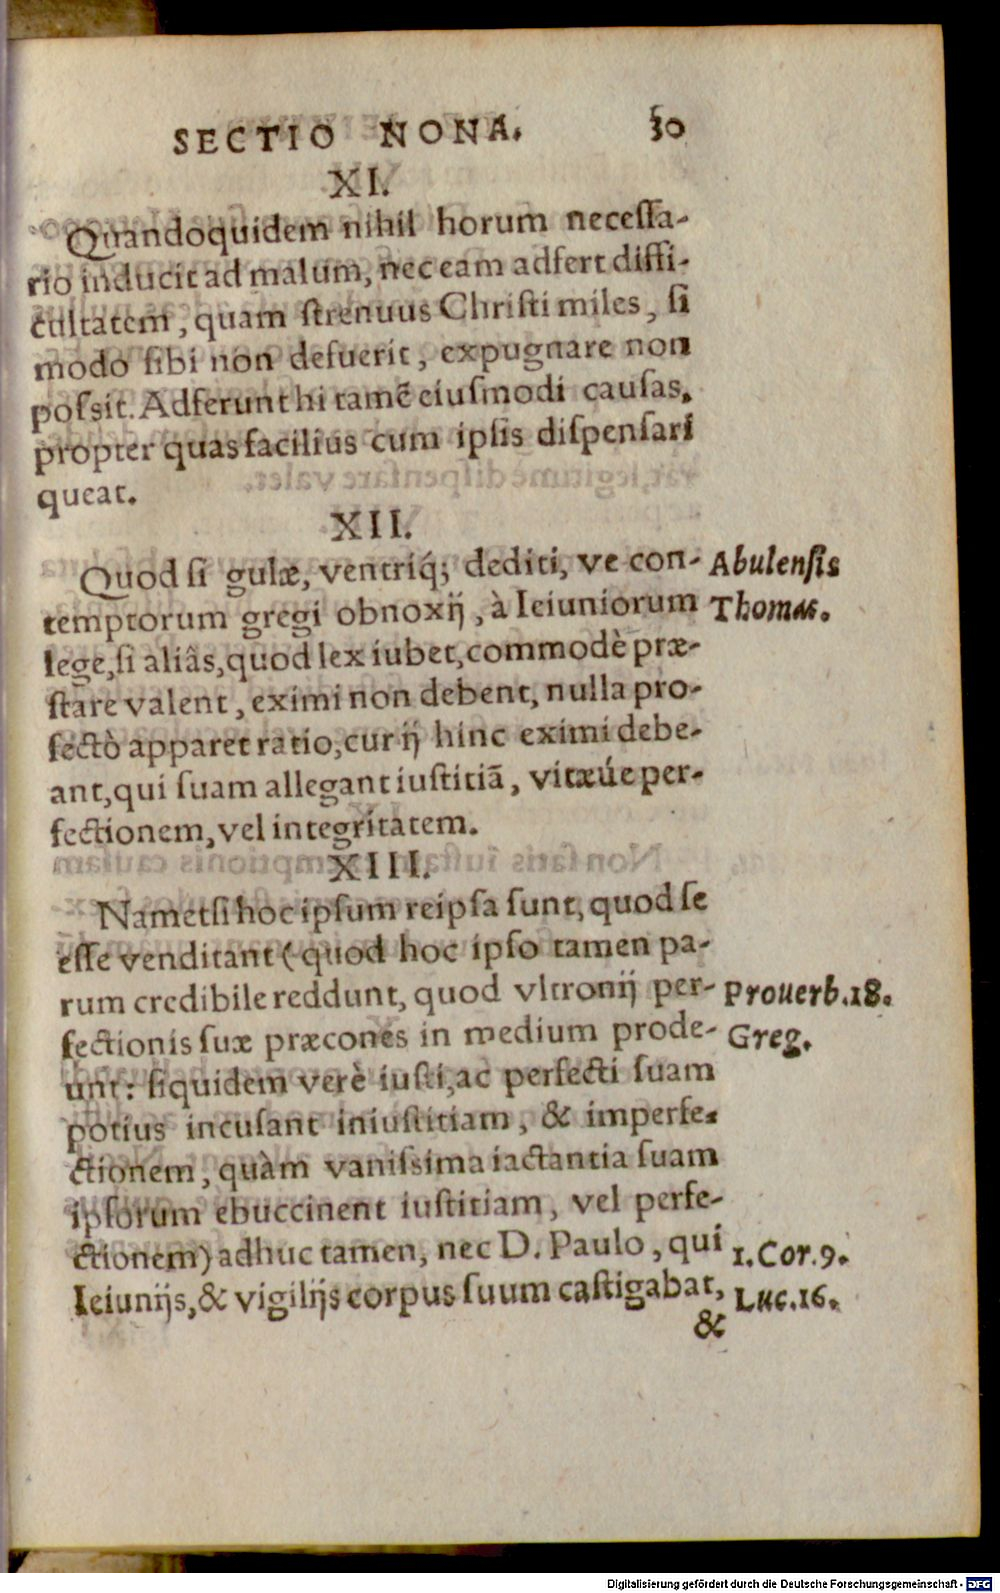 SECTIO NONA. 30
XI.
Quandoquidem nihil horum necessa-
rio inducit ad malum, nec eam adfert diffi-
cultatem, quam strenuus Christi miles, si
modo sibi non defuerit, expugnare non
possit. Adferunt hi tamẽ eiusmodi causas,
propter quas facilius cum ipsis dispensari
queat.
XII.
Quod si gulæ, ventriq́; dediti, ve con- Abulensis
temptorum gregi obnoxij, à Ieiuniorum Thomas.
lege, si aliâs, quod lex iubet, commodè præ-
stare valent, eximi non debent, nulla pro-
fectò apparet ratio, cur ij hinc eximi debe-
ant, qui suam allegant iustitiā, vitæúe per-
fectionem, vel integritatem.
XIII.
Nametsi hoc ipsum reipsa sunt, quod se
esse venditant (quod hoc ipso tamen pa-
rum credibile reddunt, quod vltronij per- Prouerb. 18.
fectionis suæ præcones in medium prode- Greg.
unt: siquidem verè iusti, ac perfecti suam
potius incusant iniustitiam, & imperfe-
ctionem, quàm vanissima iactantia suam
ipsorum ebuccinent iustitiam, vel perfe-
ctionem) adhuc tamen, nec D. Paulo, qui 1. Cor. 9.
Ieiunijs, & vigilijs corpus suum castigabat, Luc. 16.
&
Digitalisierung gefördert durch die Deutsche Forschungsgemeinschaft - DFG